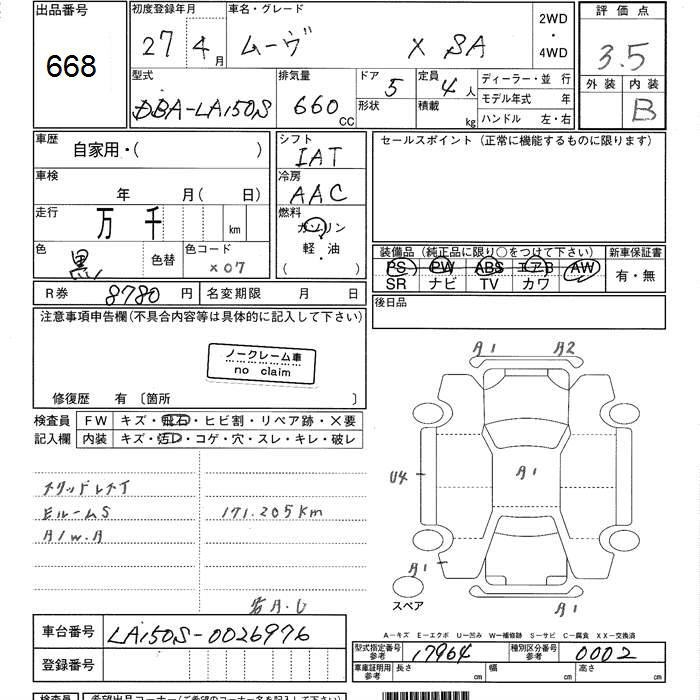 出品番号 668
初度登録年月 27 4月
車名・グレード ムーヴ X SA
2WD・4WD
評価点 3.5
外装 内装 B
型式 DBA-LA150S
排気量 660 CC
ドア 5 形状
定員 4人 積載 kg
ディーラー・並行
モデル年式 年
ハンドル 左・右
車歴 自家用・( )
シフト IAT
セールスポイント(正常に機能するものに限ります)
車検 年 月( 日)
冷房 AAC
走行 万 千 km
燃料 ガソリン 軽・油 ( )
色 黒 色替 色コード X07
装備品(純正品に限り○をつけて下さい)
PS PW ABS エアB AW
SR ナビ TV カワ
新車保証書 有・無
R券 8780円 名変期限 月 日
後日品
注意事項申告欄(不具合内容等は具体的に記入して下さい)
ノークレーム車
no claim
修復歴 有〔箇所 〕
検査員 FW キズ・飛石・ヒビ割・リペア跡・X要
記入欄 内装 キズ・汚れ・コゲ・穴・スレ・キレ・破レ
A1 A2
U4 A1
A1 A1
スペア
EルームS 171.205Km
A/W.A
A.U
車台番号 LA150S-0026976
登録番号
A-キズ E-エクボ U-凹み W-補修跡 S-サビ C-腐食 XX-交換済
型式指定番号参考 17964 種別区分番号参考 0002
車庫証明用参考 長さ cm 幅 cm 高さ cm
検査員 希望出品コーナー(ご希望のコーナー名を記入下さい)